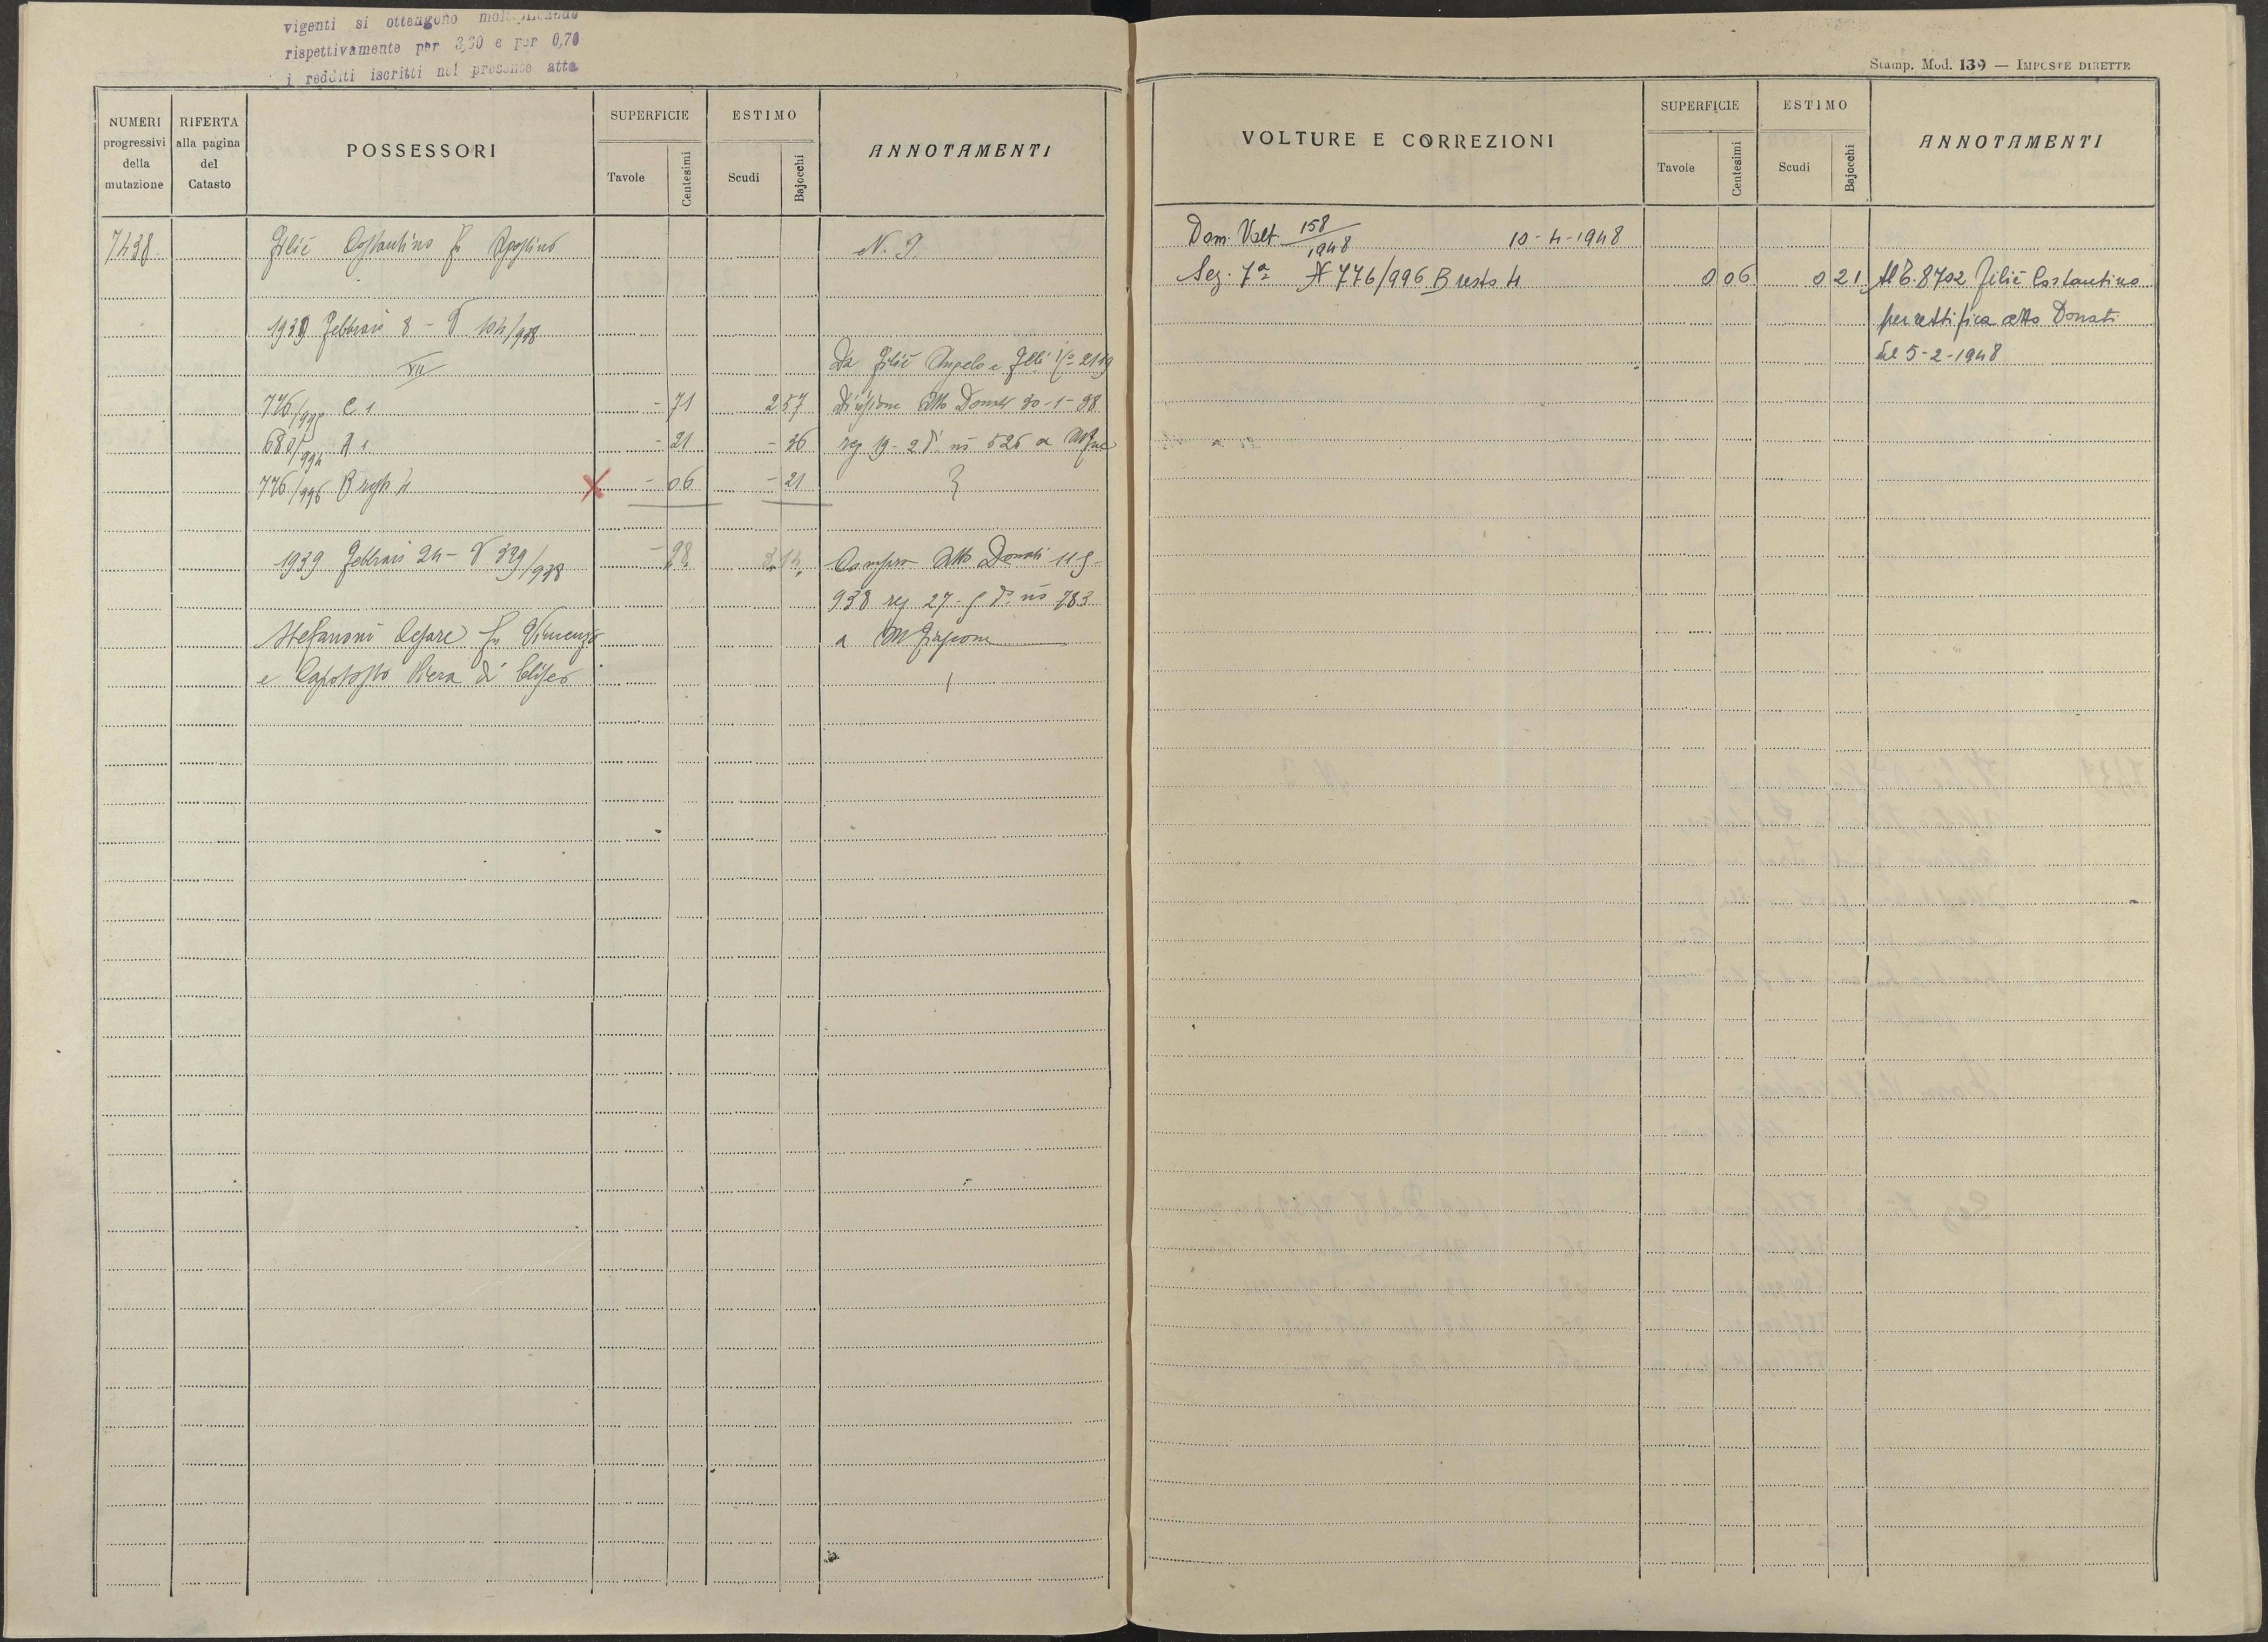 vigenti si ottengono moltiplicando
rispettivamente per 3,30 e per 0,70
i redditi iscritti nel presente atto
NUMERI progressivi della mutazione
RIFERTA alla pagina del Catasto
POSSESSORI
SUPERFICIE
Tavole
Centesimi
ESTIMO
Scudi
Bajocchi
ANNOTAMENTI
7438 Filié Costantino fu Agostino N. 9.
1939 Febbraio 8 - V 104/938
XVII
Da Filié Angelo e Flli 2119
776/995 C 1 - 71 2 57 Divisione Atto Donati 30-1-38
680/994 A 1 - 21 - 36 reg 19-2 d° n° 526 a
776/996 B resto 4 X - 06 - 21
1939 Febbraio 24 - V 339/938 - 98 3.14. Compra Atto Donati 11-9-
938 reg 27-9 d° n° 783
Stefanoni Cesare fu Vincenzo a M
e Capotosto Vera di Eliseo
Stamp. Mod. 139 — IMPOSTE DIRETTE
VOLTURE E CORREZIONI
SUPERFICIE
Tavole
Centesimi
ESTIMO
Scudi
Bajocchi
ANNOTAMENTI
Dom. Volt. 158/1948 10-4-1948
Sez. 7ª N 776/996 B resto 4 0 06 0 21 Al C. 8702 Filié Costantino
per rettifica atto Donati
del 5-2-1948